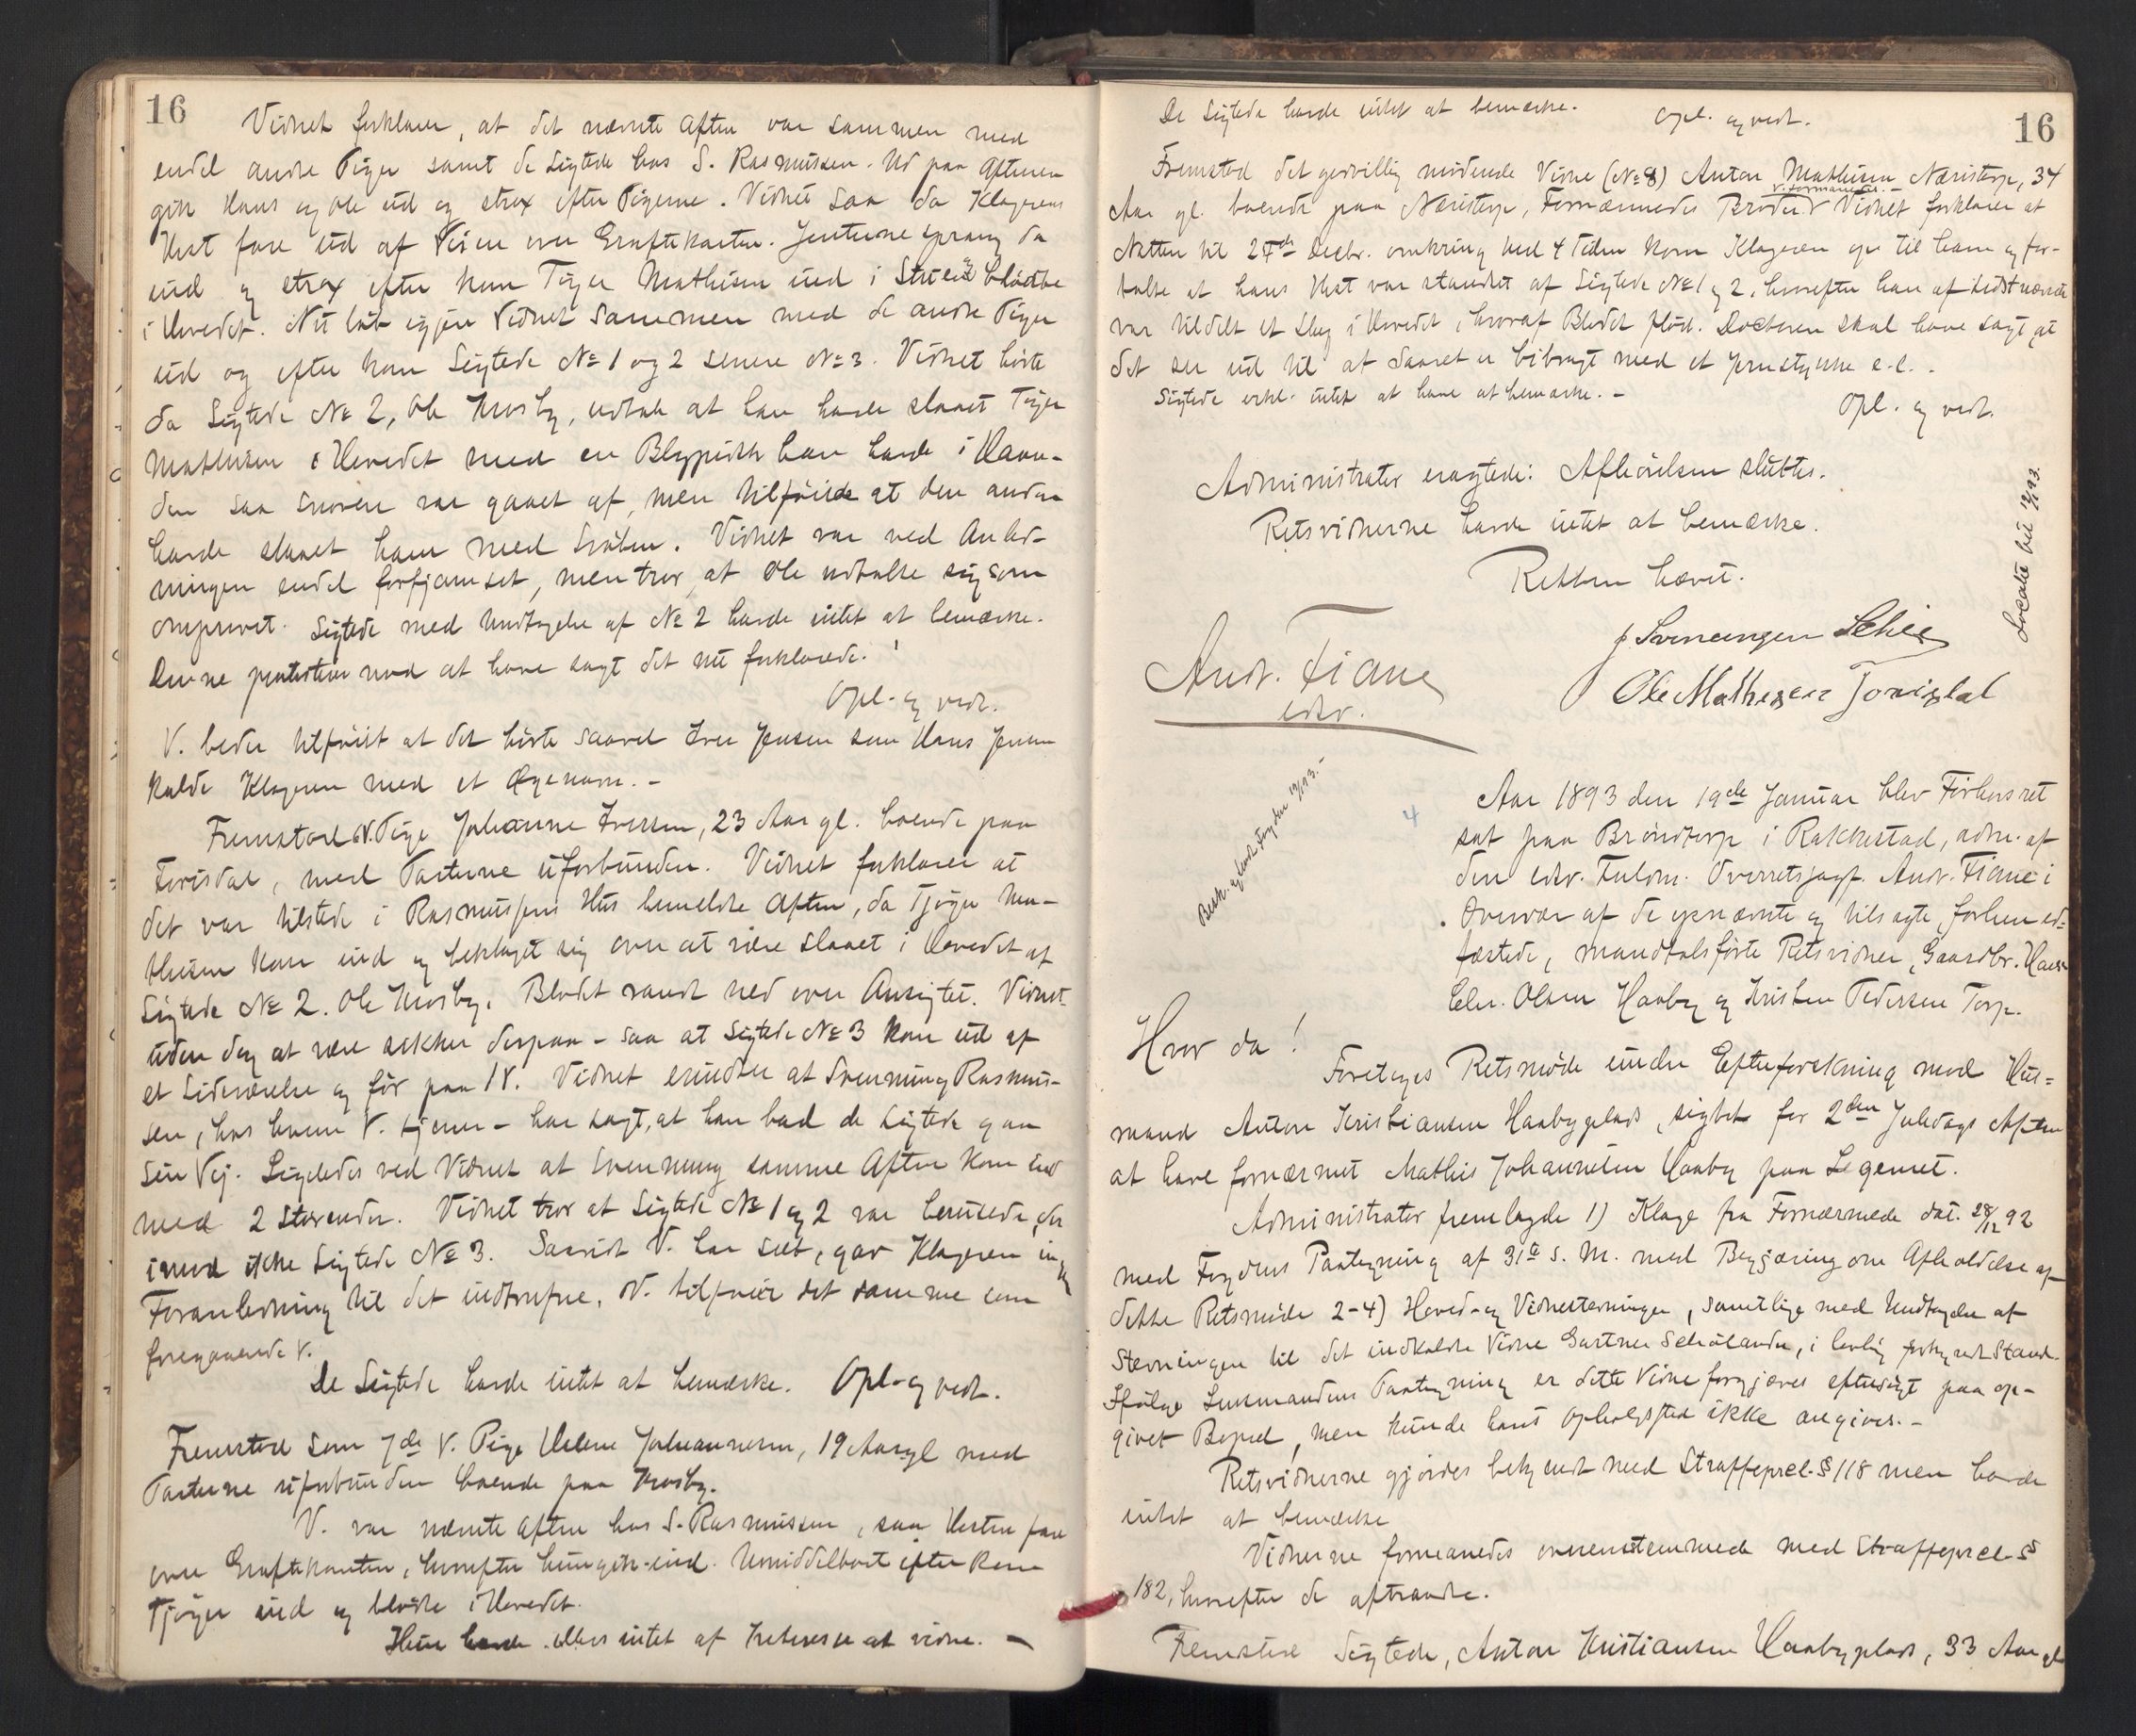 16
Vidnet forklarer, at det nævnte Aften var sammen med
endel andre Piger samt de Sigtede hos S. Rasmussen. Ud paa Aftenen
gik Hans og Ole ud og strax efter Pigerne. Vidnet saa da Klagerens
Hest fare ud af Veien over Grøftekanten. Jenterne sprang da
ind og strax efter kom Tøger Mathisen ind i Stuen blødde
i Hovedet. Nu løb igjen Vidnet sammen med de andre Piger
ud og efter kom Sigtede No 1 og 2 senere No 3. Vidnet hørte
da Sigtede No 2, Ole Mosby, udtale at han havde slaaet Tøger
Mathisen i Hovedet med en Blypidsk han havde i Haan-
den saa Snoren var gaaet af, men tilføiede at den anden
havde slaaet ham med Svøben. Vidnet var ved Anled-
ningen endel forfjamset, men tror, at Ole udtalte sig som
omprovet. Sigtede med Undtagelse af No 2 havde intet at bemærke.
Denne protesterer mod at have sagt det nu forklarede.
Opl. og vedt.
V. beder tilføiet at det hørte saavel Iver Jensen som Hans Jensen
kalde Klageren med et Øgenavn. -
Fremstod V. Pige Johanne Iversen, 23 Aar gl. boende paa
Torisdal, med Parterne uforbunden. Vidnet forklarer at
det var tilstede i Rasmussens Hus bemeldte Aften, da Tjøger Ma-
thisen kom ind og beklaget sig over at være slaaet i Hovedet af
Sigtede No 2. Ole Mosby. Blodet randt ned over Ansigtet. Vidnet
uden dog at være sikker derpaa - saa at Sigtede No 3 kom ud af
et Sideværelse og før paa 18. Vidnet erindrer at Svenning Rasmus-
sen, hos hvem V. tjener - har sagt, at han bad de Sigtede gaa
sin Vej. Ligeledes ved Vidnet at Svenning samme Aften kom ind
med 2 Staurender. Vidnet tror at Sigtede No 1 og 2 var berusede, der
imod ikke Sigtede No 3. Saavidt V. har seet, gav Klageren ingen
Foranledning til det indtrufne. V. tilføier det samme som
foregaaende V.
De Sigtede havde intet at bemærke. Opl. og vedt.
Fremstod som 7de V. Pige Helene Johannesen, 19 Aar gl med
Parterne uforbunden boende paa Mosby.
V. var nævnte Aften hos S. Rasmussen, saa Hesten fare
over Grøftekanten, hvorefter hun gik ind. Umiddelbart efter kom
Tjøger ind og blødte i Hovedet.
Hun havde ellers intet af Interesse at vidne. -
De Sigtede havde intet at bemærke. Opl. og vedt.
16
Fremstod det godvillig mødende Vidne (No 8) Anton Mathisen Næristorp, 34
v. formanedes. -
Aar gl. boende paa Næristorp, Fornærmedes Broder. Vidnet forklarer at
Natten til 27de Decbr. omkring ved 4 Tiden kom Klageren op til ham og for-
talte at hans Hest var standset af Sigtede No 1 og 2, hvorefter han af sidstnævnte
var tildelt et Slag i Hovedet, hvoraf Blodet flød. Doctoren skal have sagt, at
det ser ud til at Saaret er bibragt med et Jernstykke e.l. .
Sigtede erkl. intet at have at bemærke. -
Opl. og vedt.
Administrator eragtede: Afhørelsen sluttes.
Retsvidnerne havde intet at bemærke.
Retten hævet.
Andr. Fiane
edsv.
J Svenningen Schie
Ole Mathisen Torisdal
Aar 1893 den 19de Januar blev Forhørsret
sat paa Brøndtorp i Rakkestad, adm. af
den edsv. Fuldm. Overretssagf. Andr. Fiane i
Overvær af de opnævnte og tilsagte, forhen ed-
fæstede, mandtalsførte Retsvidner, Gaardbr. Hans
Edv. Olsen Haaby og Kristen Pedersen Torp.
4
Hvor da!
Foretoges Retsmøde under Efterforskning mod Hus-
mand Anton Kristiansen Haabyplads, sigtet for 2den Juledags Aften
at have fornærmet Mathis Johannesen Haaby paa Legemet.
Administrator fremlagde 1) Klage fra Fornærmede dat. 28/12 92
med Fogdens Paategning af 31te s. M. med Begjæring om Afholdelse af
dette Retsmøde 2-4) Hoved- og Vidnestævninger, samtlige med Undtagelse af
Stævningen til det indkaldte Vidne Gartner Schölander, i lovlig forkyndt Stand.
Ifølge Lensmandens Paategning er dette Vidne forgjæves eftersøgt paa op-
givet Bopæl, men kunde hans Opholdssted ikke angives. -
Retsvidnerne gjordes bekjendt med Straffeprcl. § 118 men havde
intet at bemærke
Vidnerne formanedes overensstemmende med Straffeprcl. §
182, hvorefter de aftraadte.
Fremstod Sigtede, Anton Kristiansen Haabyplads, 33 Aar gl